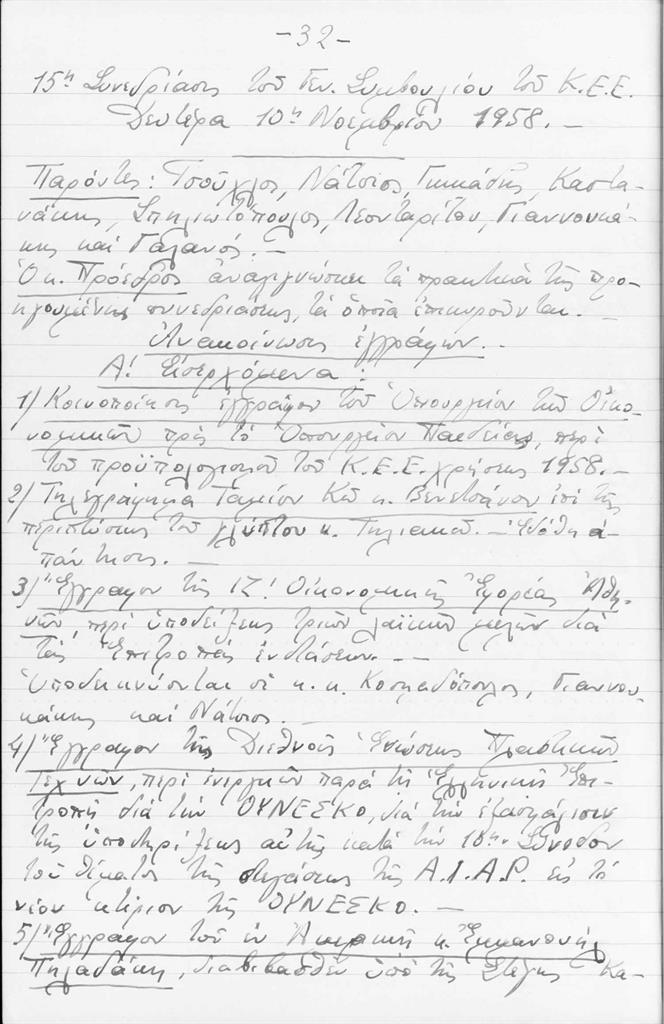 -32-
15η Συνεδρίασις τοῦ Γεν. Συμβουλίου τοῦ Κ.Ε.Ε.
Δευτέρα 10η Νοεμβρίου 1958.-
Παρόντες: Τσοῦχλος, Νάτσιος, Γιακάδης, Καστα-
νάκης, Σπηλιωτόπουλος, Λεονταρίτου, Γιαννουκά-
κης καὶ Γαλανός.-
Ὁ κ. Πρόεδρος ἀναγιγνώσκει τὰ πρακτικὰ τῆς προ-
ηγουμένης συνεδριάσεως, τὰ ὁποῖα ἐπικυροῦνται.-
Ἀνακοίνωσις ἐγγράφων.-
Α! Εἰσερχόμενα:
1) Κοινοποίησις ἐγγράφου τοῦ Ὑπουργείου τῶν Οἰκο-
νομικῶν πρὸς τὸ Ὑπουργεῖον Παιδείας, περὶ
τοῦ προϋπολογισμοῦ τοῦ Κ.Ε.Ε. χρήσεως 1958.-
2) Τηλεγράφημα Ταμίου Κῶ κ. Βενετσάνου ἐπὶ τῆς
περιπτώσεως τοῦ γλύπτου κ. Τηλιακοῦ.- Ἐδόθη ἀ-
πάντησις.-
3) Ἔγγραφον τῆς ΙΖ! Οἰκονομικῆς Ἐφορίας Ἀθη-
νῶν, περὶ ὑποδείξεως τριῶν λαϊκῶν μελῶν διὰ
τὰς Ἐπιτροπὰς ἐνστάσεων.-
Ὑποδεικνύονται οἱ κ.κ. Κοσμαδόπουλος, Γιαννου-
κάκης καὶ Νάτσιος.-
4) Ἔγγραφον τῆς Διεθνοῦς Ἑνώσεως Πλαστικῶν
Τεχνῶν, περὶ ἐνεργειῶν παρὰ τῇ Ἑλληνικῇ Ἐπι-
τροπῇ διὰ τὴν ΟΥΝΕΣΚΟ, διὰ τὴν ἐξασφάλισιν
τῆς ὑποστηρίξεως αὐτῆς κατὰ τὴν 10ην Σύνοδον
τοῦ θέματος τῆς στεγάσεως τῆς A.I.A.P. εἰς τὸ
νέον κτίριον τῆς ΟΥΝΕΣΚΟ.-
5) Ἔγγραφον τοῦ ἐν Ἀμερικῇ κ. Ἐμμανουὴλ
Πηλαδάκη, διαβιβασθὲν ὑπὸ τῆς Στέγης Κα-